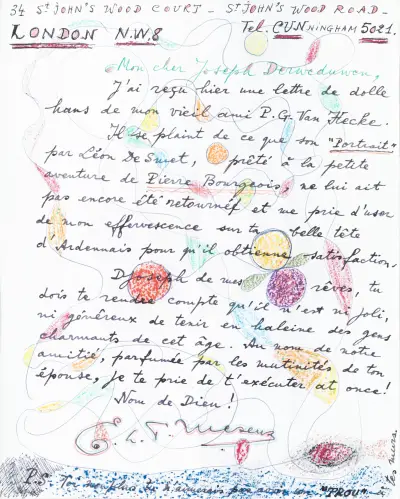 34 ST JOHN'S WOOD COURT - ST JOHN'S WOOD ROAD -
LONDON N.W.8 Tel. CUNningham 5021.
Mon cher Joseph Derweduwen,
J'ai reçu hier une lettre de dolle
hans de mon vieil ami P.G. Van Hecke.
Il se plaint de ce que son "Portrait"
par Léon De Smet, prêté à la petite
aventure de Pierre Bourgeois, ne lui ait
pas encore été retourné et me prie d'user
de mon effervescence sur ta belle tête
d'Ardennais pour qu'il obtienne satisfaction.
Djoseph de mes rêves, tu
dois te rendre compte qu'il n'est ni joli,
ni généreux de tenir en haleine des gens
charmants de cet âge. Au nom de notre
amitié, parfumée par les mutinités de ton
épouse, je te prie de t'exécuter at once!
Nom de Dieu!
E.L.T. Mesens
P.S. "TROU" à
les murs.